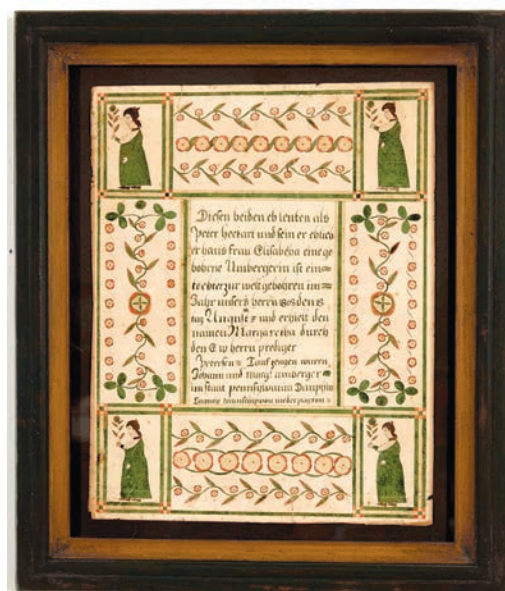 Diesen beiden eh leuten als
Peter heckart und sein er ehlich
er haus frau Elisabeha eine ge
bohrne Umbergerin ist ein
tochter zur welt gebohren im
Jahr unsers herrn den
tag August und erhielt den
namen Margaretha durch
den E w herrn prediger
Tauf zeugen waren
Johann und marg: umberger
im staat pennsylvania Dauphin
taunschip von nieder paxton